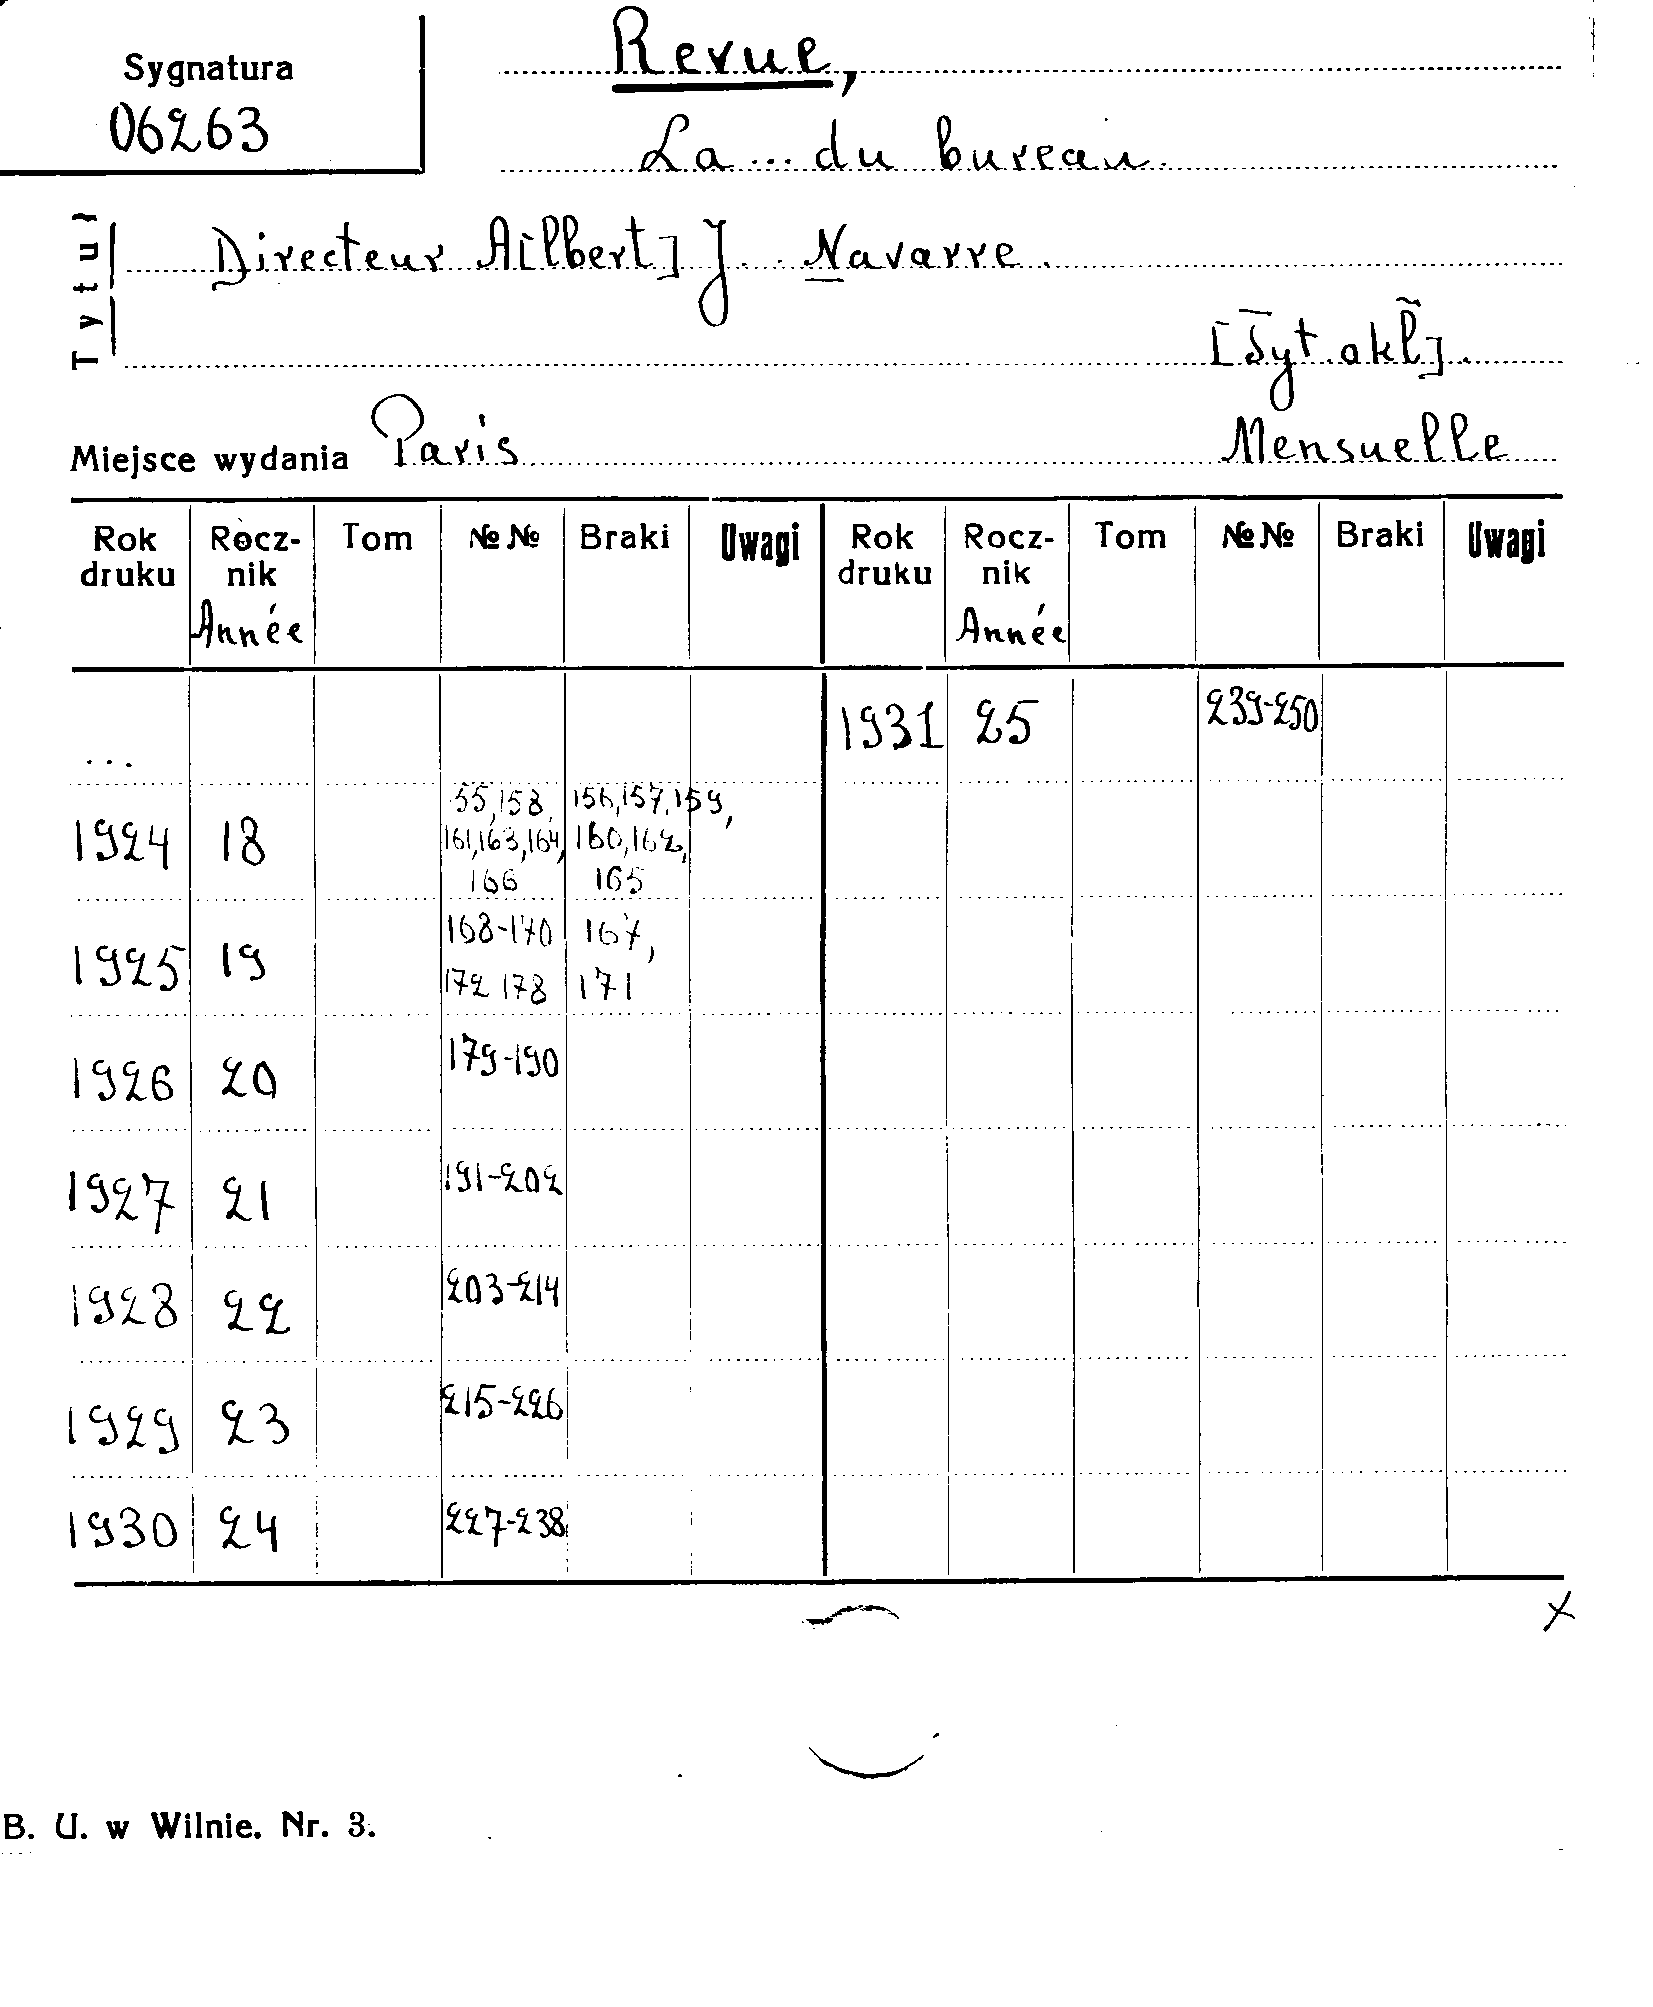 Sygnatura
06263
Revue,
La ... du bureau.
Tytuł
Directeur A[lbert] J. Navarre.
[Tyt. okł].
Miejsce wydania Paris Mensuelle
Rok druku Rocz-nik Année Tom №№ Braki Uwagi Rok druku Rocz-nik Année Tom №№ Braki Uwagi
... 1931 25 239-250
55,158, 156,157,159,
1924 18 161,163,164, 160,162,
166 165
168-170 167,
1925 19 172 178 171
1926 20 179-190
1927 21 191-202
1928 22 203-214
1929 23 215-226
1930 24 227-238
x
B. U. w Wilnie. Nr. 3.